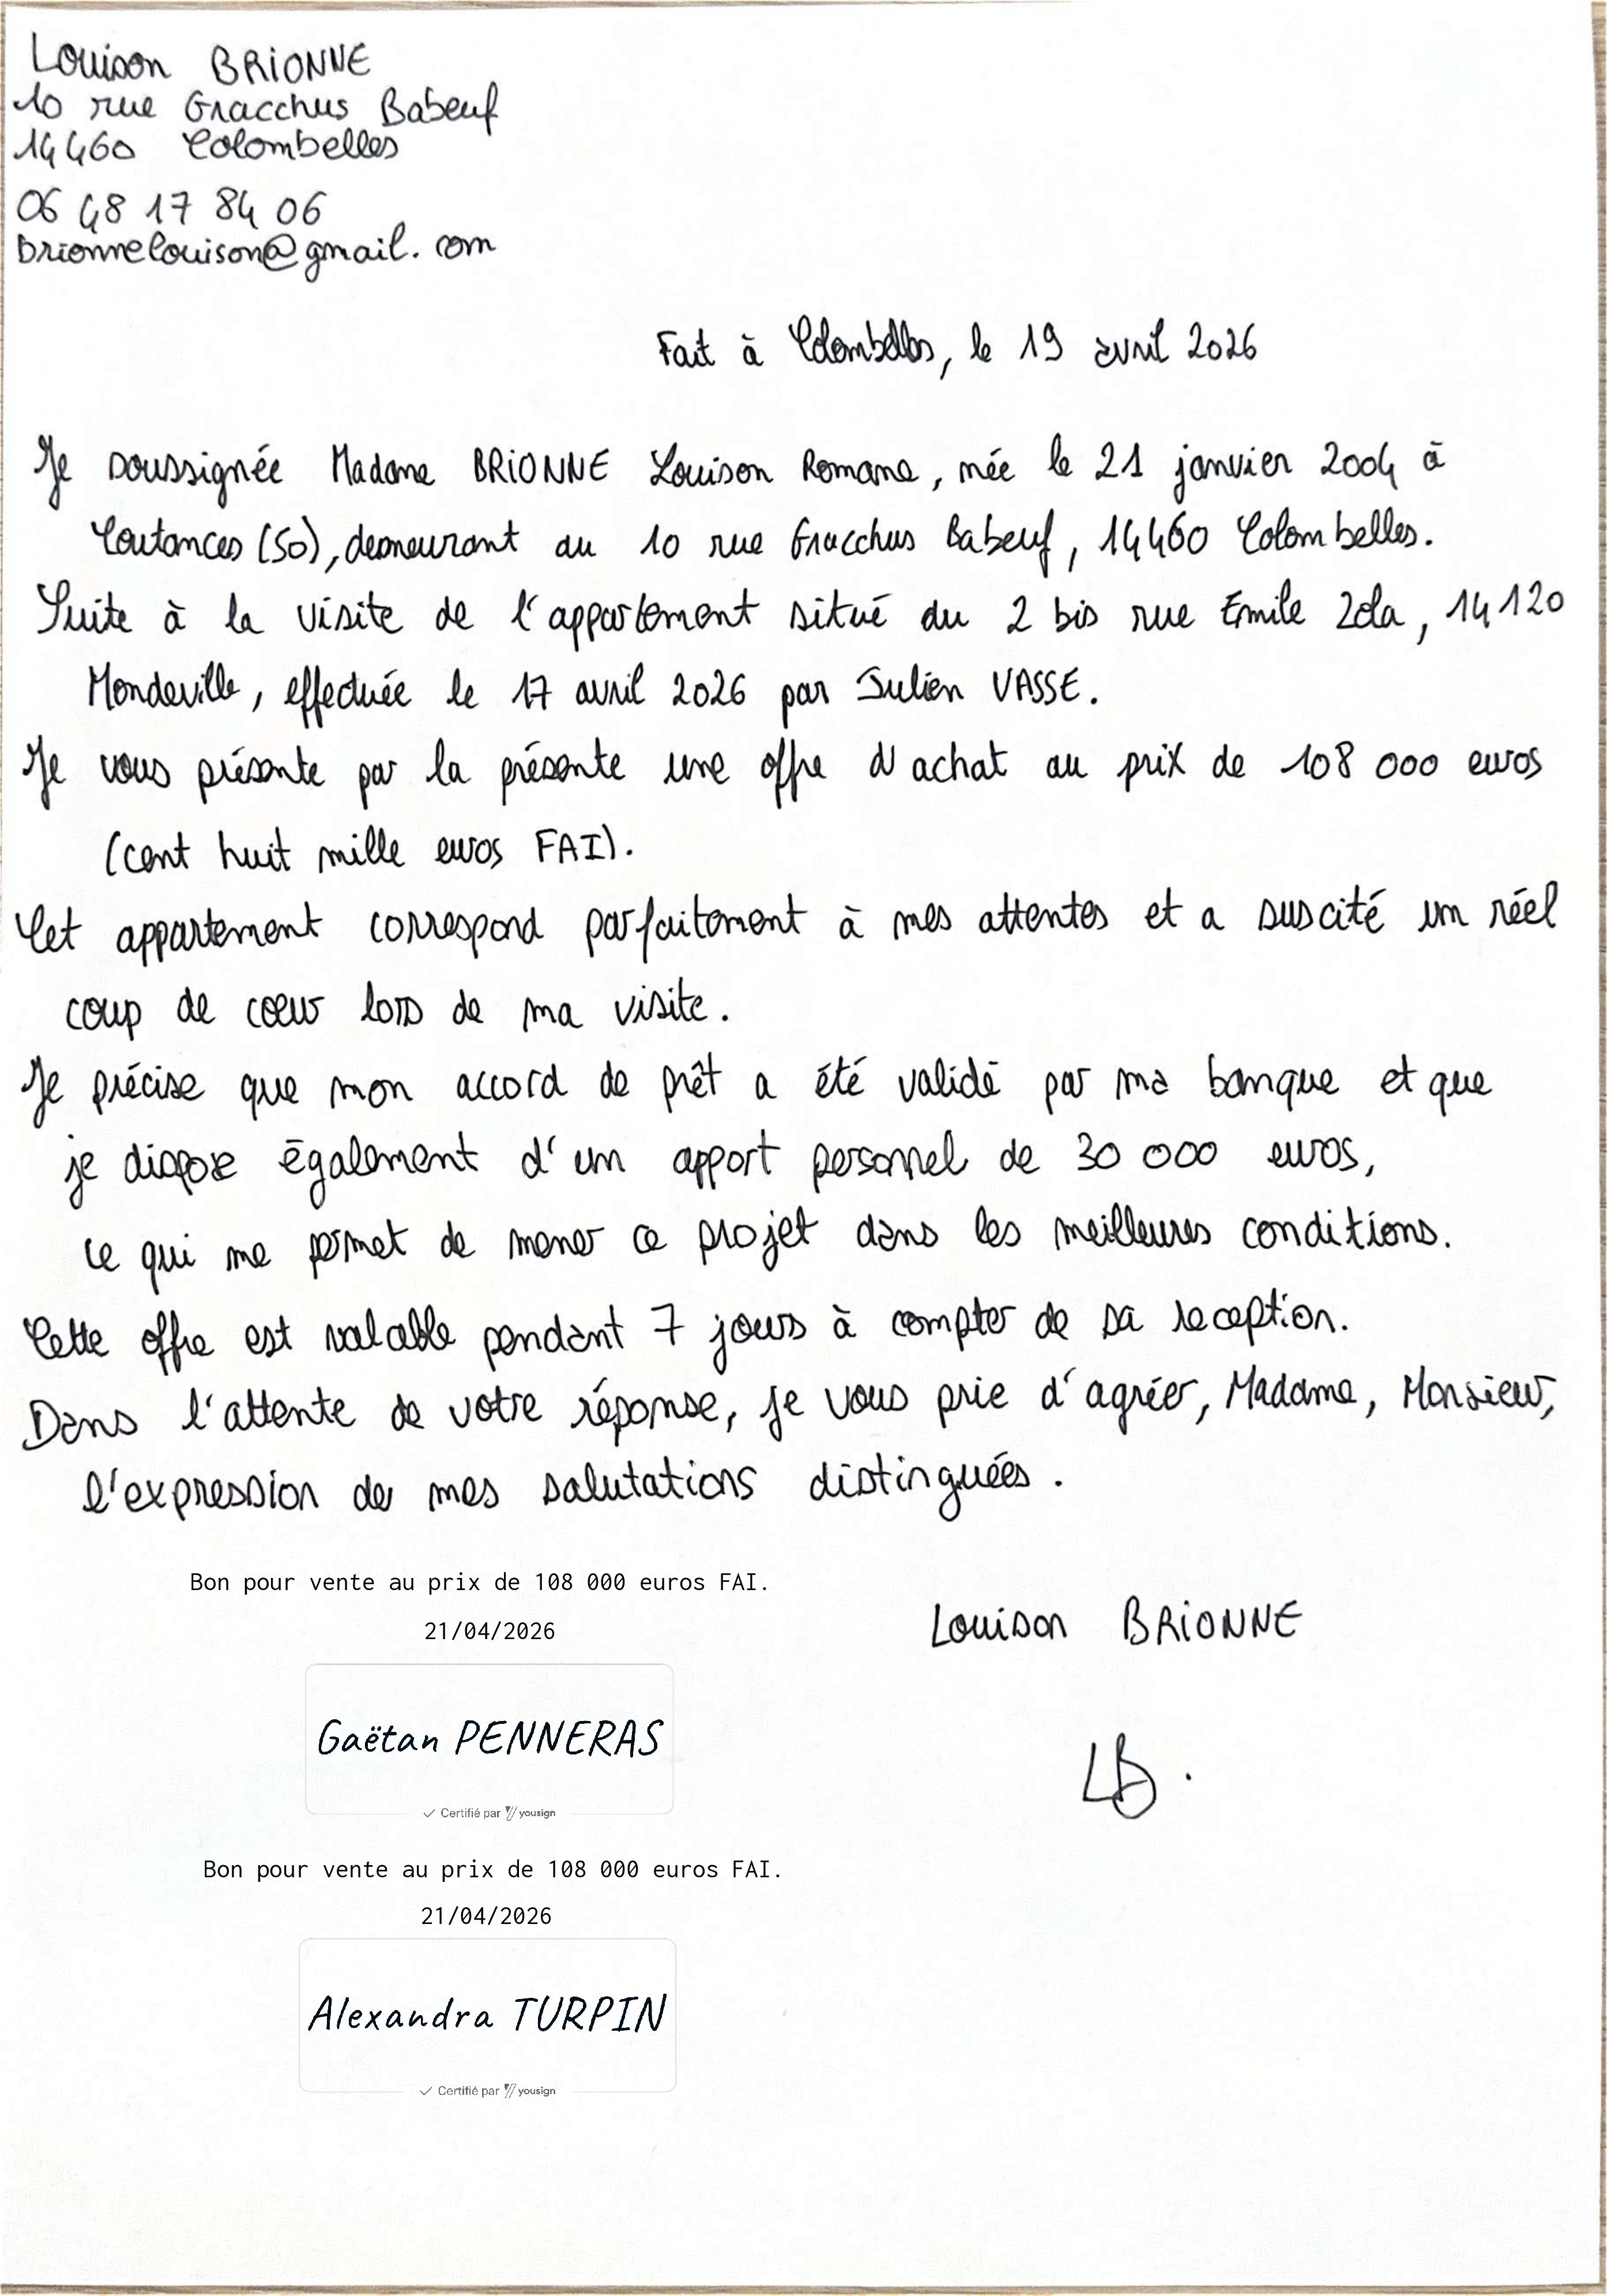 Louison BRIONNE
10 rue Gracchus Babeuf
14460 Colombelles
06 48 17 84 06
brionnelouison@gmail.com
Fait à Colombelles, le 19 avril 2026
Je soussignée Madame BRIONNE Louison Romane, née le 21 janvier 2004 à
Coutances (50), demeurant au 10 rue Gracchus Babeuf, 14460 Colombelles.
Suite à la visite de l'appartement situé du 2 bis rue Emile Zola, 14120
Mondeville, effectuée le 17 avril 2026 par Julien VASSE.
Je vous présente par la présente une offre d'achat au prix de 108 000 euros
(cent huit mille euros FAI).
Cet appartement correspond parfaitement à mes attentes et a suscité un réel
coup de cœur lors de ma visite.
Je précise que mon accord de prêt a été validé par ma banque et que
je dispose également d'un apport personnel de 30 000 euros,
ce qui me permet de mener ce projet dans les meilleures conditions.
Cette offre est valable pendant 7 jours à compter de sa reception.
Dans l'attente de votre réponse, je vous prie d'agréer, Madame, Monsieur,
l'expression de mes salutations distinguées.
Bon pour vente au prix de 108 000 euros FAI.
21/04/2026
Louison BRIONNE
Gaëtan PENNERAS
Certifié par yousign
LB.
Bon pour vente au prix de 108 000 euros FAI.
21/04/2026
Alexandra TURPIN
Certifié par yousign